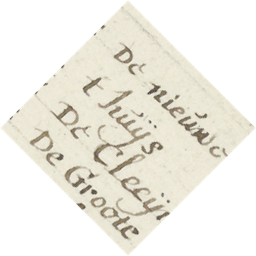 De nieuwe
t huijs
De Cleeij
De Groote